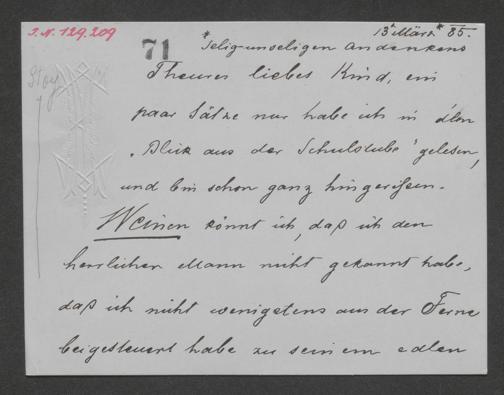 I.N. 129.209
71
13 März 85.
* selig-unseligen Andenkens *
Theures liebes Kind, ein
paar Sätze nur habe ich in dem
„Blick aus der Schulstube" gelesen,
und bin schon ganz hingerißen.
Weinen könnt ich, daß ich den
herrlichen Mann nicht gekannt habe,
daß ich nicht wenigstens aus der Ferne
beigesteuert habe zu seinem edlen